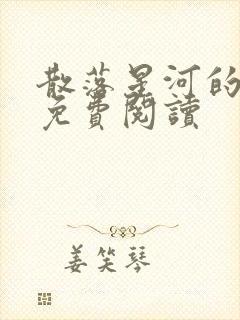 散落星河的
免費閱讀
姜笑琴